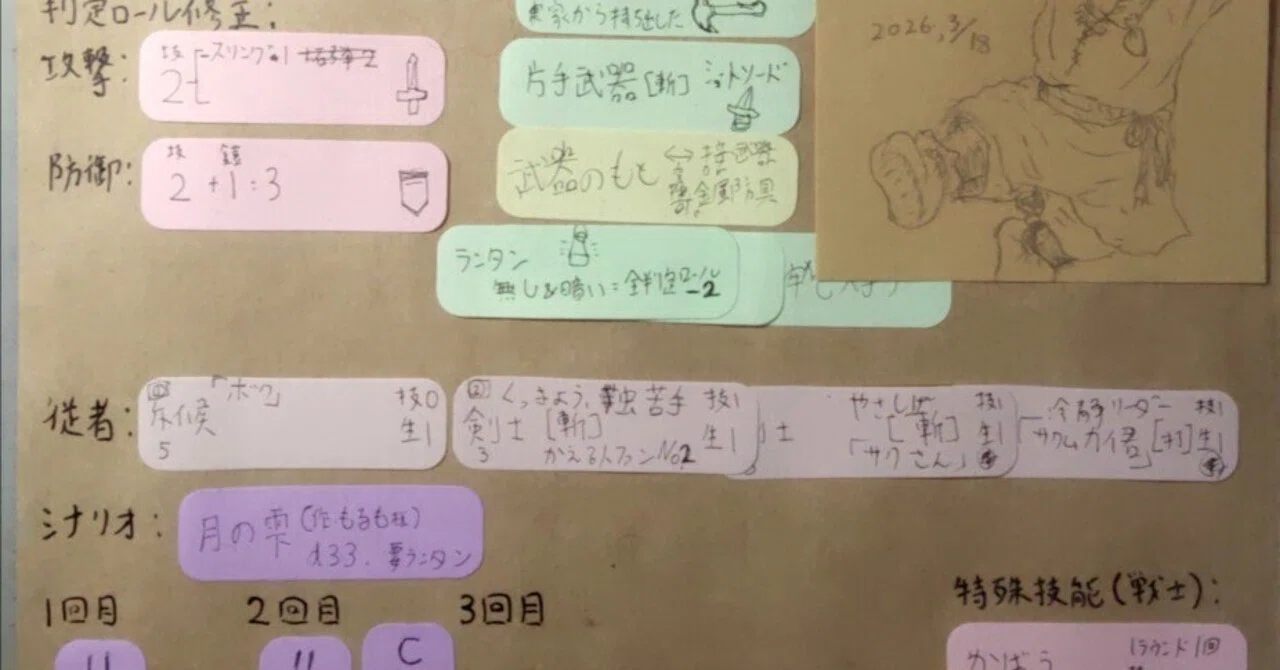 判定ロール修正:
実家から持ち出した
2026.3/18
攻撃:
技
スリング
2
片手武器[斬] ショートソード
防御:
技 鎧
2 +1:3
武器のもと ↔
金属防具
ランタン
無し&暗い=全判定ロール-2
従者:
「ホック」
技0
生1
5
くっきょう、 苦手 技1
剣士 [斬] 生1
3 かえる人ファンNo2
士
やさしい 技1
[斬] 生1
「サクさん」
冷静リーダー 技1
[打] 生1
シナリオ:
月の雫(作もるも社)
d33. 要ランタン
1回目
2回目
3回目
C
特殊技能(戦士):
かばう
1ラウンド1回